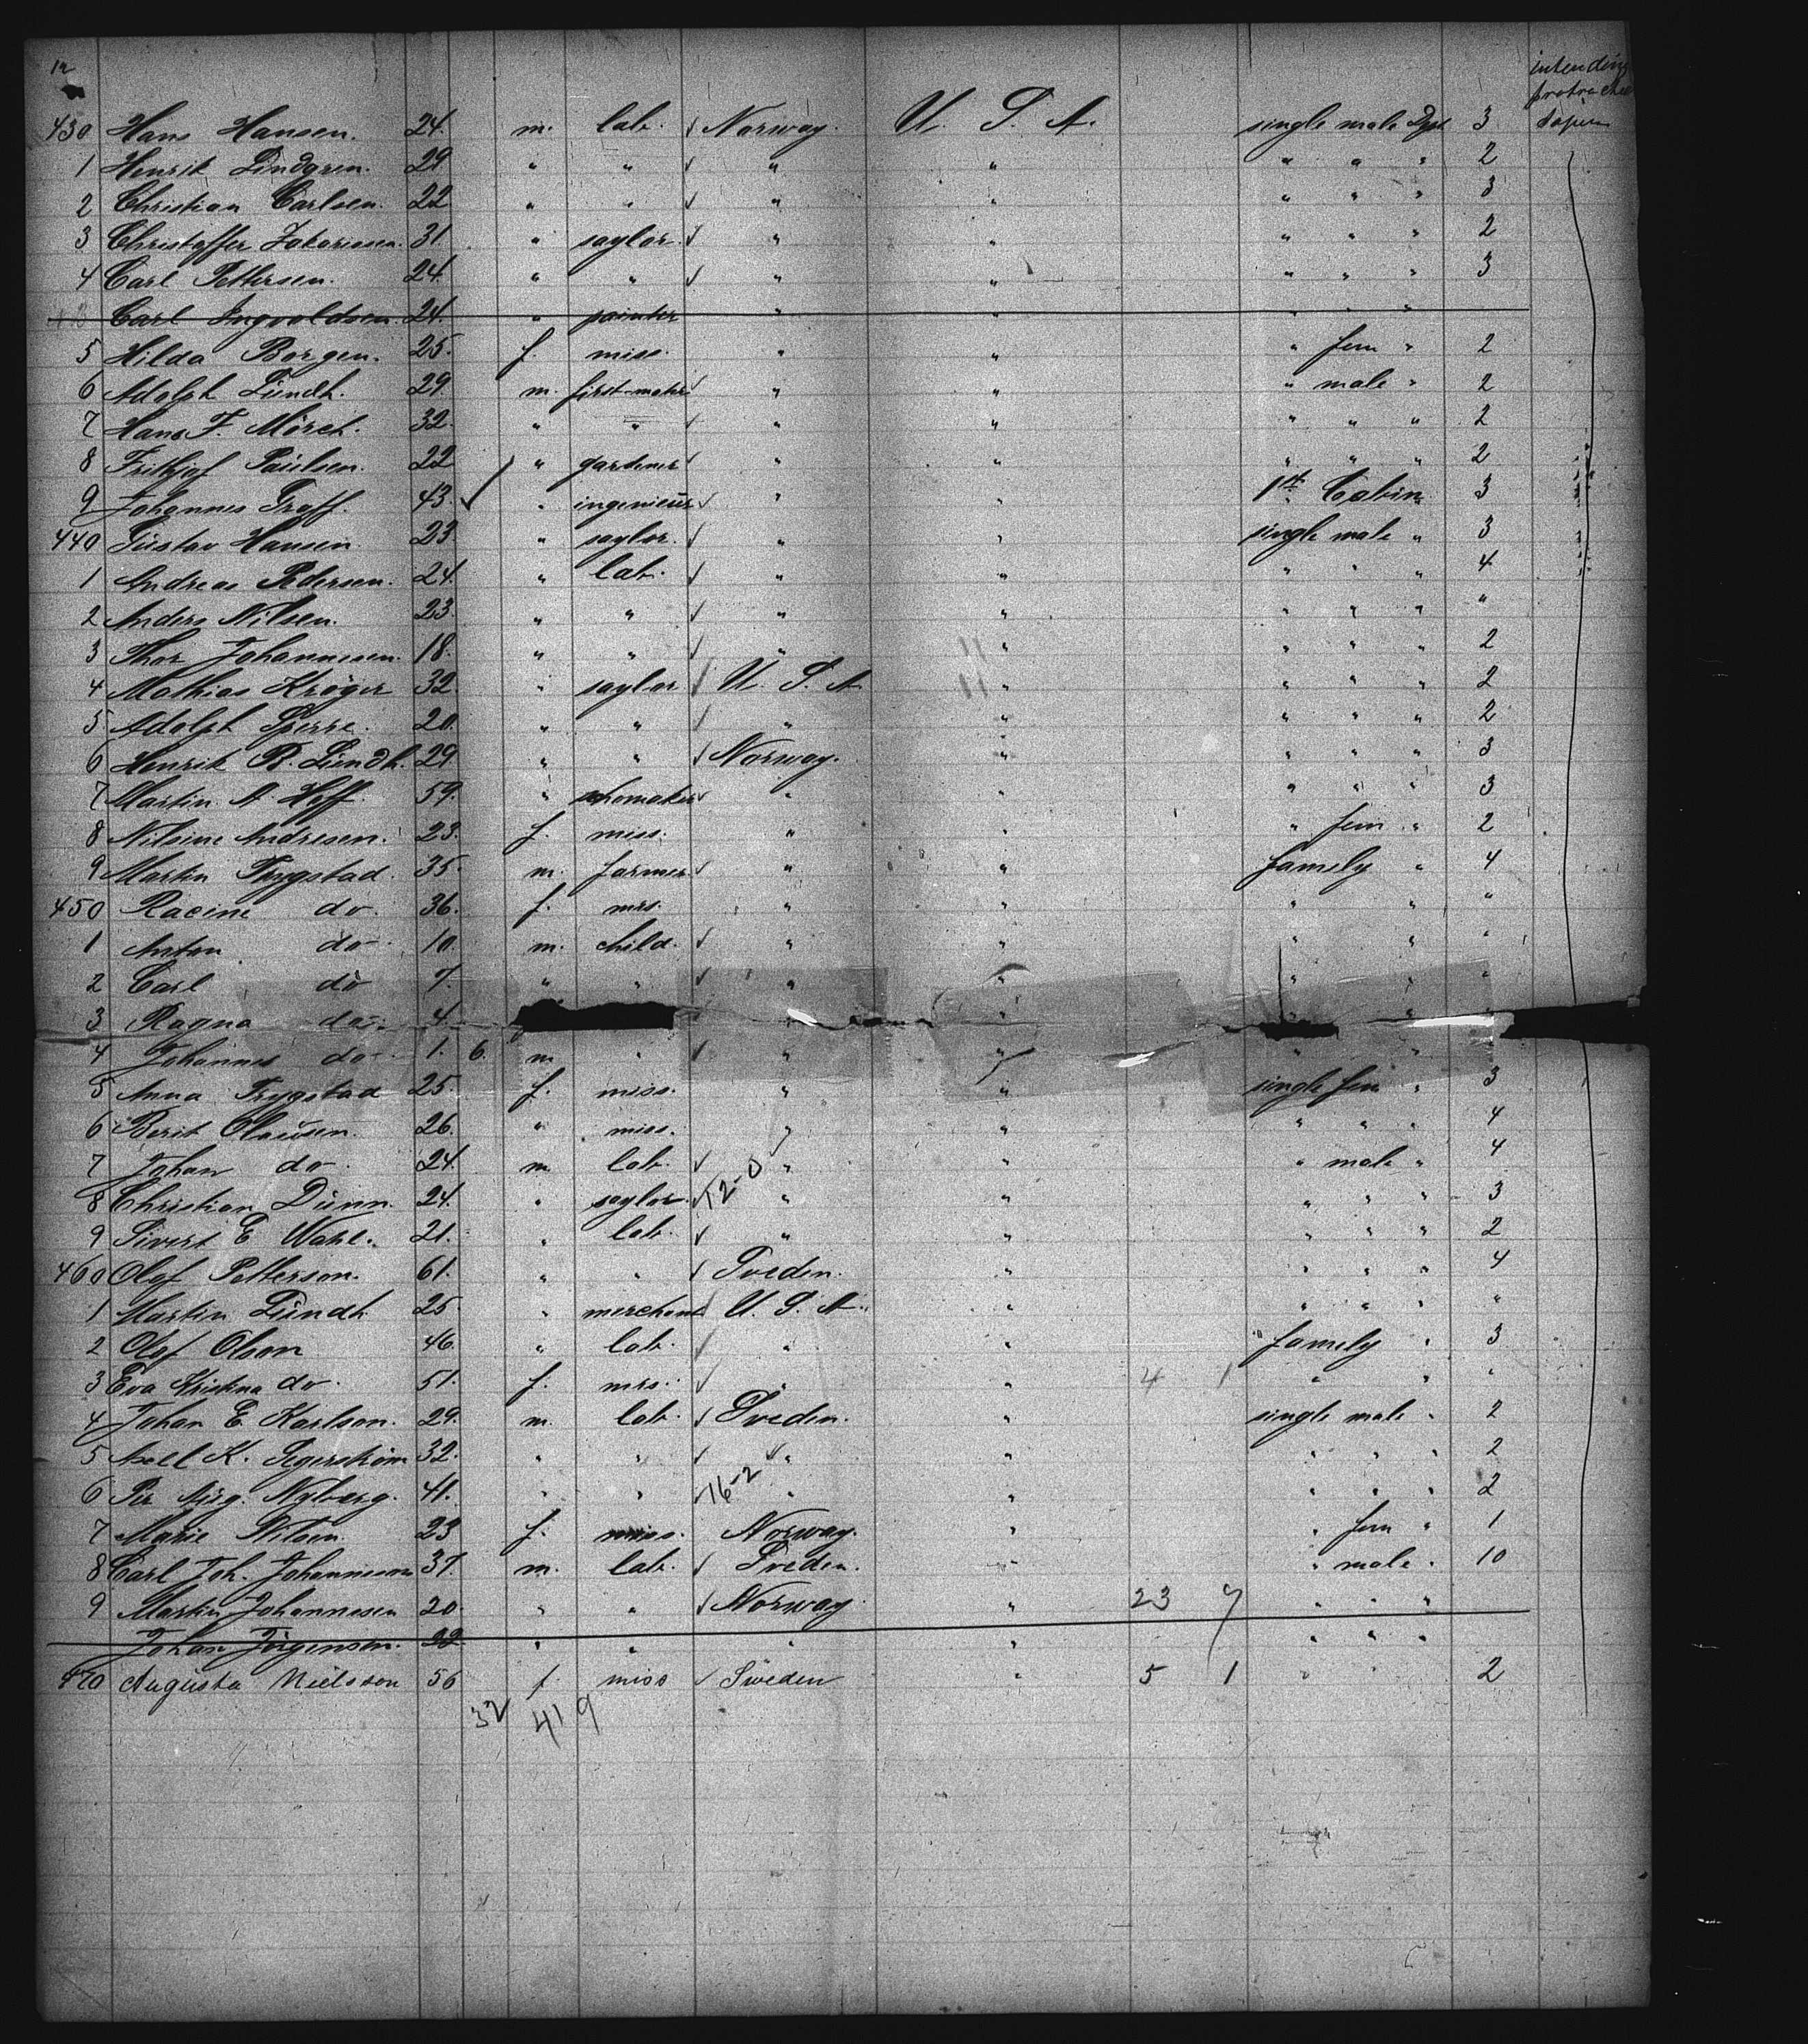 12
intending
430 Hans Hansen. 24. m. lab. √ Norway. U. S. A. single male Dpt. 3
1 Henrik Lindgren. 29 " " √ " " " " " 2
2 Christian Carlsen. 22 " " √ " " " " " 3
3 Christoffer Zakariesen. 31. " saylor. √ " " " " " 2
4 Carl Pettersen. 24. " " √ " " " " " 3
Carl Ingvoldsen. 24. " painter " " " " "
5 Hilda Borgen. 25. f. miss. " " " fem " 2
6 Adolph Lundh. 29. m. first-mate √ " " " male " 2
7 Hans F. Mörch. 32. " " √ " " " " " 2
8 Frithjof Paulsen. 22 " gardener √ " " " " " 2
9 Johannes Graff. 43. √ " ingenieur √ " " 1st Cabin 3
440 Gustav Hansen. 23. " saylor. √ " " single male " 3
1 Andreas Pedersen. 24. " lab. √ " " " " " 4
2 Anders Nilsen. 23. " " √ " " " " " "
3 Thor Johannesen. 18. " " √ " " " " " 2
4 Mathias Kröger 32. " saylor √ U. S. A. " " " " 2
5 Adolph Sperre. 20. " " √ " " " " " 2
6 Henrik R. Lundh. 29 " " √ Norway. " " " " 3
7 Martin A Hoff. 59. " schomaker √ " " " " " 3
8 Nilsine Andresen. 23. f. miss. " " " fem " 2
9 Martin Trygstad. 35. m. farmer √ " " famely " 4
450 Racine do. 36. f. mrs. " " " " "
1 Anton do. 10. m. child. √ " " " " "
2 Carl do 7. " " √ " " " " "
3 Ragna do. 4. " " " " "
4 Johannes do. 1. 6. m. " √ " " " "
5 Anna Trygstad 25. f. miss. " " single fem " 3
6 Berit Olausen. 26. " miss. " " " " " 4
7 Johan do. 24. m. lab. √ " " " male " 4
8 Christian Dünn. 24. " saylor √ 12-0 " " " " " 3
9 Sivert E Wahl. 21. " lab. √ " " " " " 2
460 Olof Petterson. 61. " " √ Sveden. " " " " 4
1 Martin Lundh 25. " merchant √ U. S. A. " " " " "
2 Olof Olson 46. " lab. √ " " famely " 3
3 Eva Kristina do. 51. f. mrs. √ " " 4 1 " " "
4 Johan E. Karlson. 29. m. lab. √ Sveden. " single male " 2
5 Axell K. Segerström 32. " " √ " " " " " 2
6 Per Aug. Nyberg. 41. " " √ 16-2 " " " " " 2
7 Marie Nilsen 23 f. miss. Norway. " " fem " 1
8 Carl Joh. Johanneson 37. m. lab. √ Sveden. " " male " 10
9 Martin Johannesen 20. " " √ Norway " 23 7 " " "
Johan Jörgensen. 22 " " " " " " "
470 Augusta Nielsson 56 f. miss √ Sweden " 5 1 " " 2
32 419